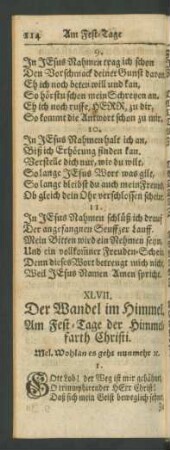 214 Am Fest-Tage
9.
In JEsus Nahmen trag ich schon
Den Vorschmack deiner Gunst davon
Eh ich noch beten will und kan,
So hörstu schon mein Schreyen an.
Eh ich noch ruffe, HERR, zu dir,
So kommt die Antwort schon zu mir.
10.
In JEsus Nahmen halt ich an,
Biß ich Erhörung finden kan.
Verstelle dich nur, wie du wilt.
So lange JEsus Wort was gilt,
So lange bleibst du auch mein Freund,
Ob gleich dein Ohr verschlossen scheint.
11.
In JEsus Nahmen schließ ich drauf
Der angefangnen Seuffzer Lauff.
Mein Bitten wird ein Nehmen seyn,
Und ein vollkommner Freuden-Schein
Denn dieses Wort betreugt mich nicht,
Weil JEsus Namen Amen spricht.
XLVII.
Der Wandel im Himmel,
Am Fest-Tage der Himmel-
farth Christi.
Mel. Wohlan es geht nunmehr ꝛc.
1.
GOtt Lob! der Weg ist mir gebähnet,
O triumphirender HErr Christ!
Daß sich mein Geist beweglich sehnet